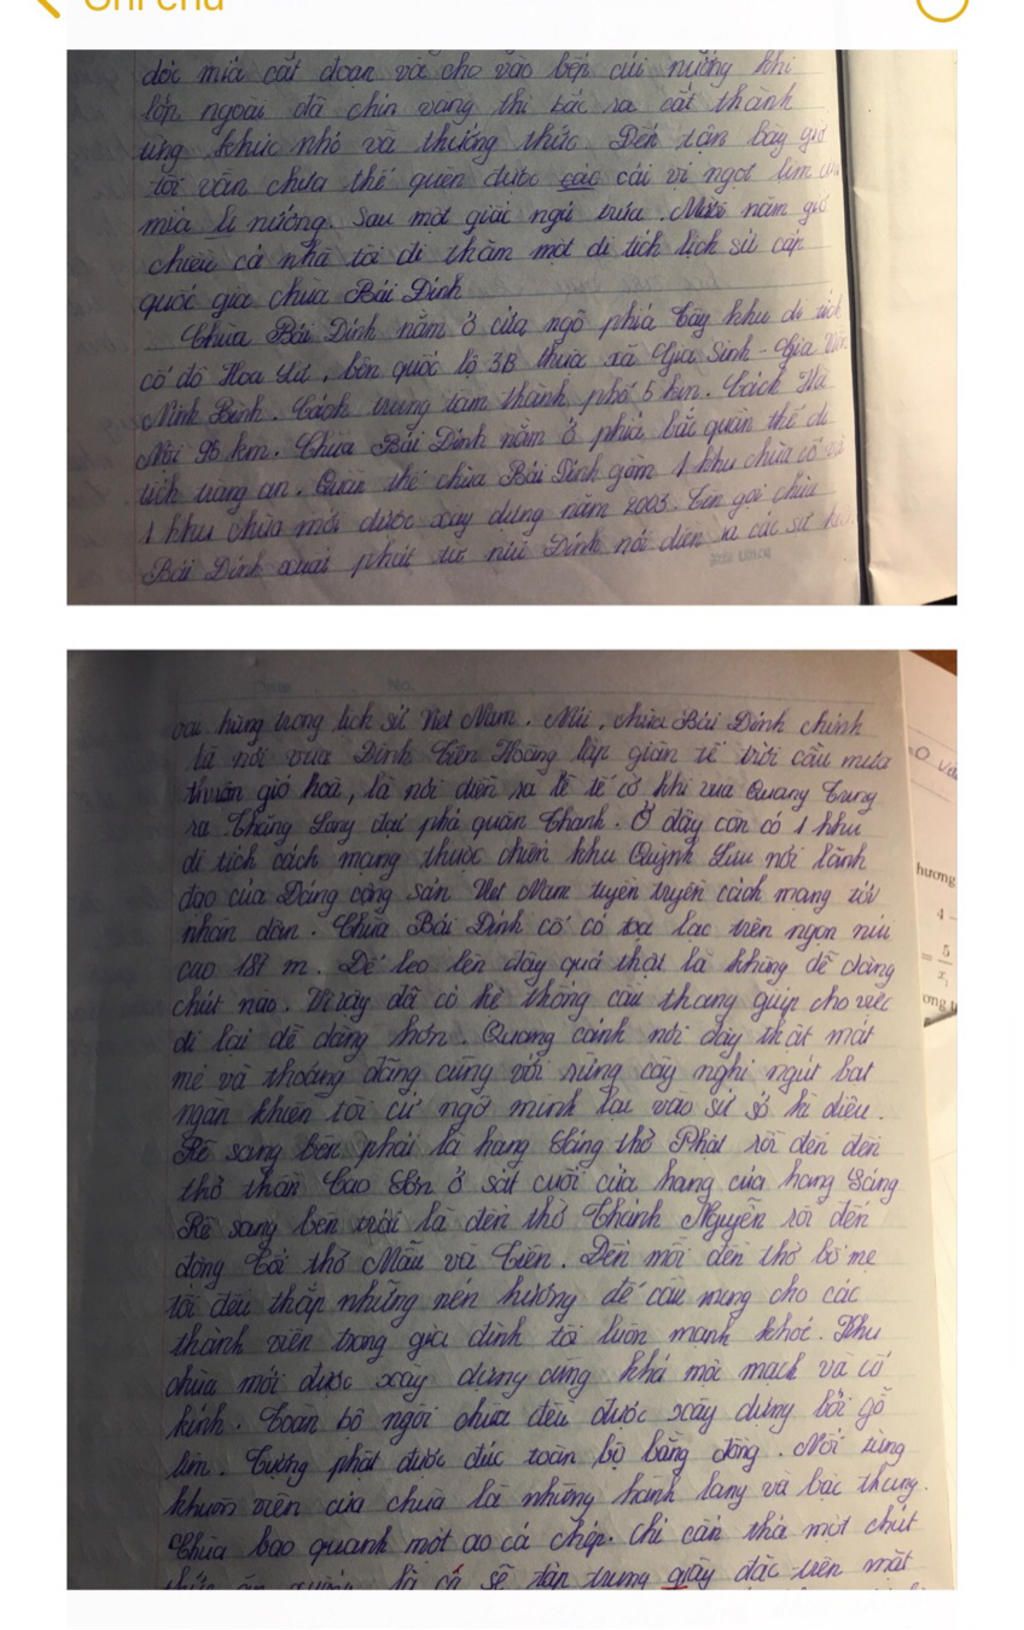 Ghi chú
dóc mía cắt đoạn và cho vào bếp củi nướng khi
lớp ngoài đã chín vàng thì bác ra cắt thành
từng khúc nhỏ và thưởng thức. Đến tận bây giờ
tôi vẫn chưa thể quên được các cái vị ngọt lịm
mía li nướng. Sau một giấc ngủ trưa. năm giờ
chiều cả nhà tôi đi thăm một di tích lịch sử cấp
quốc gia chùa Bái Đính
Chùa Bái Đính nằm ở cửa ngõ phía Tây khu di tích
cố đô Hoa Lư, bên quốc lộ 3B thuộc xã Gia Sinh - Gia
Ninh Bình. Cách trung tâm thành phố 5 km. Cách Hà
Nội 95 km. Chùa Bái Đính nằm ở phía bắc quần thể di
tích tràng an. Quần thể chùa Bái Đính gồm 1 khu chùa cổ và
1 khu chùa mới được xây dựng năm 2003. Tên gọi chùa
Bái Đính xuất phát từ núi Đính nơi diễn ra các sự
oai hùng trong lịch sử Việt Nam. Núi, chùa Bái Đính chính
là nơi vua Đinh Tiên Hoàng lập giàn tế trời cầu mưa
thuận gió hoà, là nơi diễn ra lễ tế cờ khi vua Quang Trung
ra Thăng Long đại phá quân Thanh. Ở đây còn có 1 khu
di tích cách mạng thuộc chiến khu Quỳnh Lưu nơi lãnh
đạo của Đảng cộng sản Việt Nam tuyên truyền cách mạng tới
nhân dân. Chùa Bái Đính cổ có toạ lạc trên ngọn núi
cao 187 m. Để leo lên đây quả thật là không dễ dàng
chút nào. Vì vậy đã có hệ thống cầu thang giúp cho việc
đi lại dễ dàng hơn. Quang cảnh nơi đây thật mát
mẻ và thoáng đãng cùng với rừng cây nghi ngút bạt
ngàn khiến tôi cứ ngỡ mình lạc vào sứ sở kì diệu.
Rẽ sang bên phải là hang Sáng thờ Phật rồi đến đền
thờ thần Cao Sơn ở sát cuối cửa hang của hang Sáng
Rẽ sang bên trái là đền thờ Thánh Nguyễn rồi đến
động Tối thờ Mẫu và Tiên. Đến mỗi đền thờ bố mẹ
tôi đều thắp những nén hương để cầu mong cho các
thành viên trong gia đình tôi luôn mạnh khoẻ. Khu
chùa mới được xây dựng cũng khá mộc mạch và cổ
kính. Toàn bộ ngôi chùa đều được xây dựng bởi gỗ
lim. Tượng phật được đúc toàn bộ bằng đồng. Nối từng
khuôn viên của chùa là những hành lang và bậc thang.
Chùa bao quanh một ao cá chép. Chỉ cần thả một chút
thức ăn xuống là cá sẽ tập trung giầy đặc trên mặt